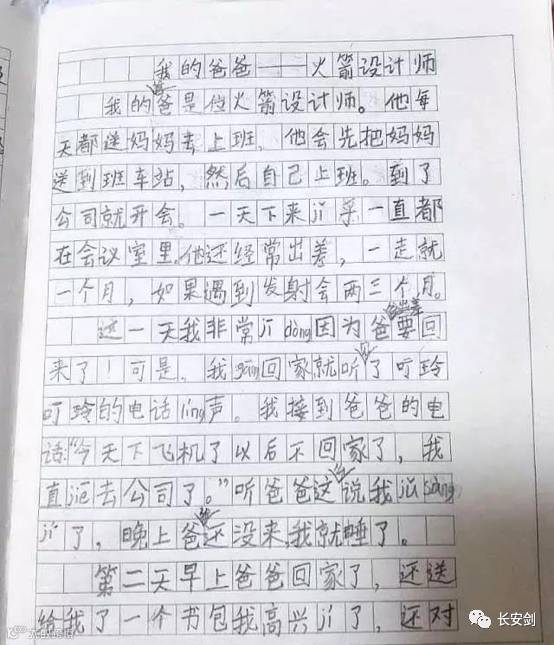 我的爸爸——火箭设计师
我的爸爸是位火箭设计师。他每
天都送妈妈去上班，他会先把妈妈
送到班车站，然后自己上班。到了
公司就开会。一天下来jī乎一直都
在会议室里，他还经常出差，一走就
一个月，如果遇到发射会两三个月。
这一天我非常jī dòng因为爸爸出差要回
来了！可是，我gāng回家就听了叮玲
叮玲的电话líng声。我接到爸爸的电
话：“今天下飞机了以后不回家了，我
直jiē去公司了。”听爸爸这说我jǔ sàng
jí了，晚上爸还没来，我就睡了。
第二天早上爸爸回家了，还送
给我了一个书包我高兴jí了，还对
长安剑